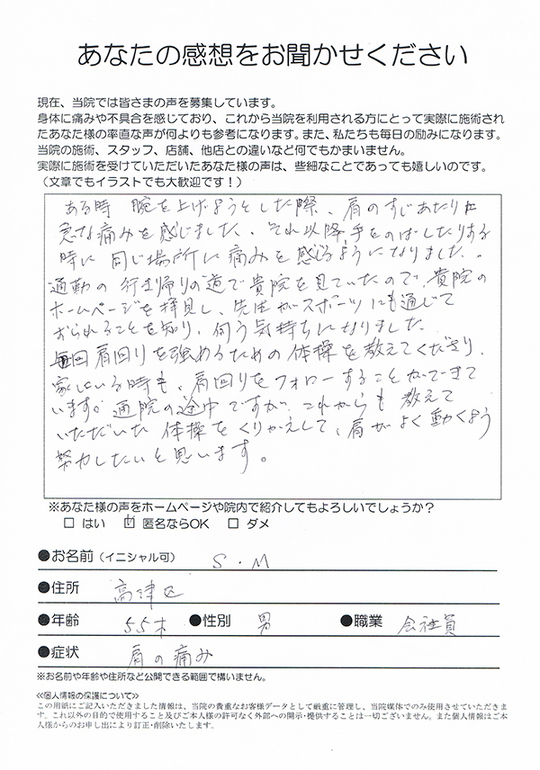 あなたの感想をお聞かせください
現在、当院では皆さまの声を募集しています。
身体に痛みや不具合を感じており、これから当院を利用される方にとって実際に施術され
たあなた様の率直な声が何よりも参考になります。また、私たちも毎日の励みになります。
当院の施術、スタッフ、店舗、他店との違いなど何でもかまいません。
実際に施術を受けていただいたあなた様の声は、些細なことであっても嬉しいのです。
（文章でもイラストでも大歓迎です！）
ある時 腕を上げようとした際、肩のすじあたりに
急な痛みを感じました、それ以降、手をのばしたりする
時に 同じ場所に痛みを感るようになりました。
通勤の 行き帰りの道で貴院を見ていたので、貴院の
ホームページを拝見し、先生がスポーツにも通じて
おられることを知り、伺う気持ちになりました。
毎回肩回りを強めるための体操を教えてくださり、
家にいる時も、肩回りをフォローすることができて
います。通院の途中ですが、これからも教えて
いただいた 体操をくりかえして、肩がよく動くよう
努力したいと思います。
※あなた様の声をホームページや院内で紹介してもよろしいでしょうか？
□ はい ☑ 匿名ならOK □ ダメ
●お名前（イニシャル可） S．M
●住所 高津区
●年齢 55才 ●性別 男 ●職業 会社員
●症状 肩の痛み
※お名前や年齢や住所など公開できる範囲で構いません。
≪個人情報の保護について≫
この用紙にご記入いただきました情報は、当院の貴重なお客様データとして厳重に管理し、当院媒体でのみ使用させていただきま
す。これ以外の目的で使用すること及びご本人様の許可なく外部への開示・提供することは一切ございません。また個人情報はご本
人様からのお申し出により訂正・削除いたします。